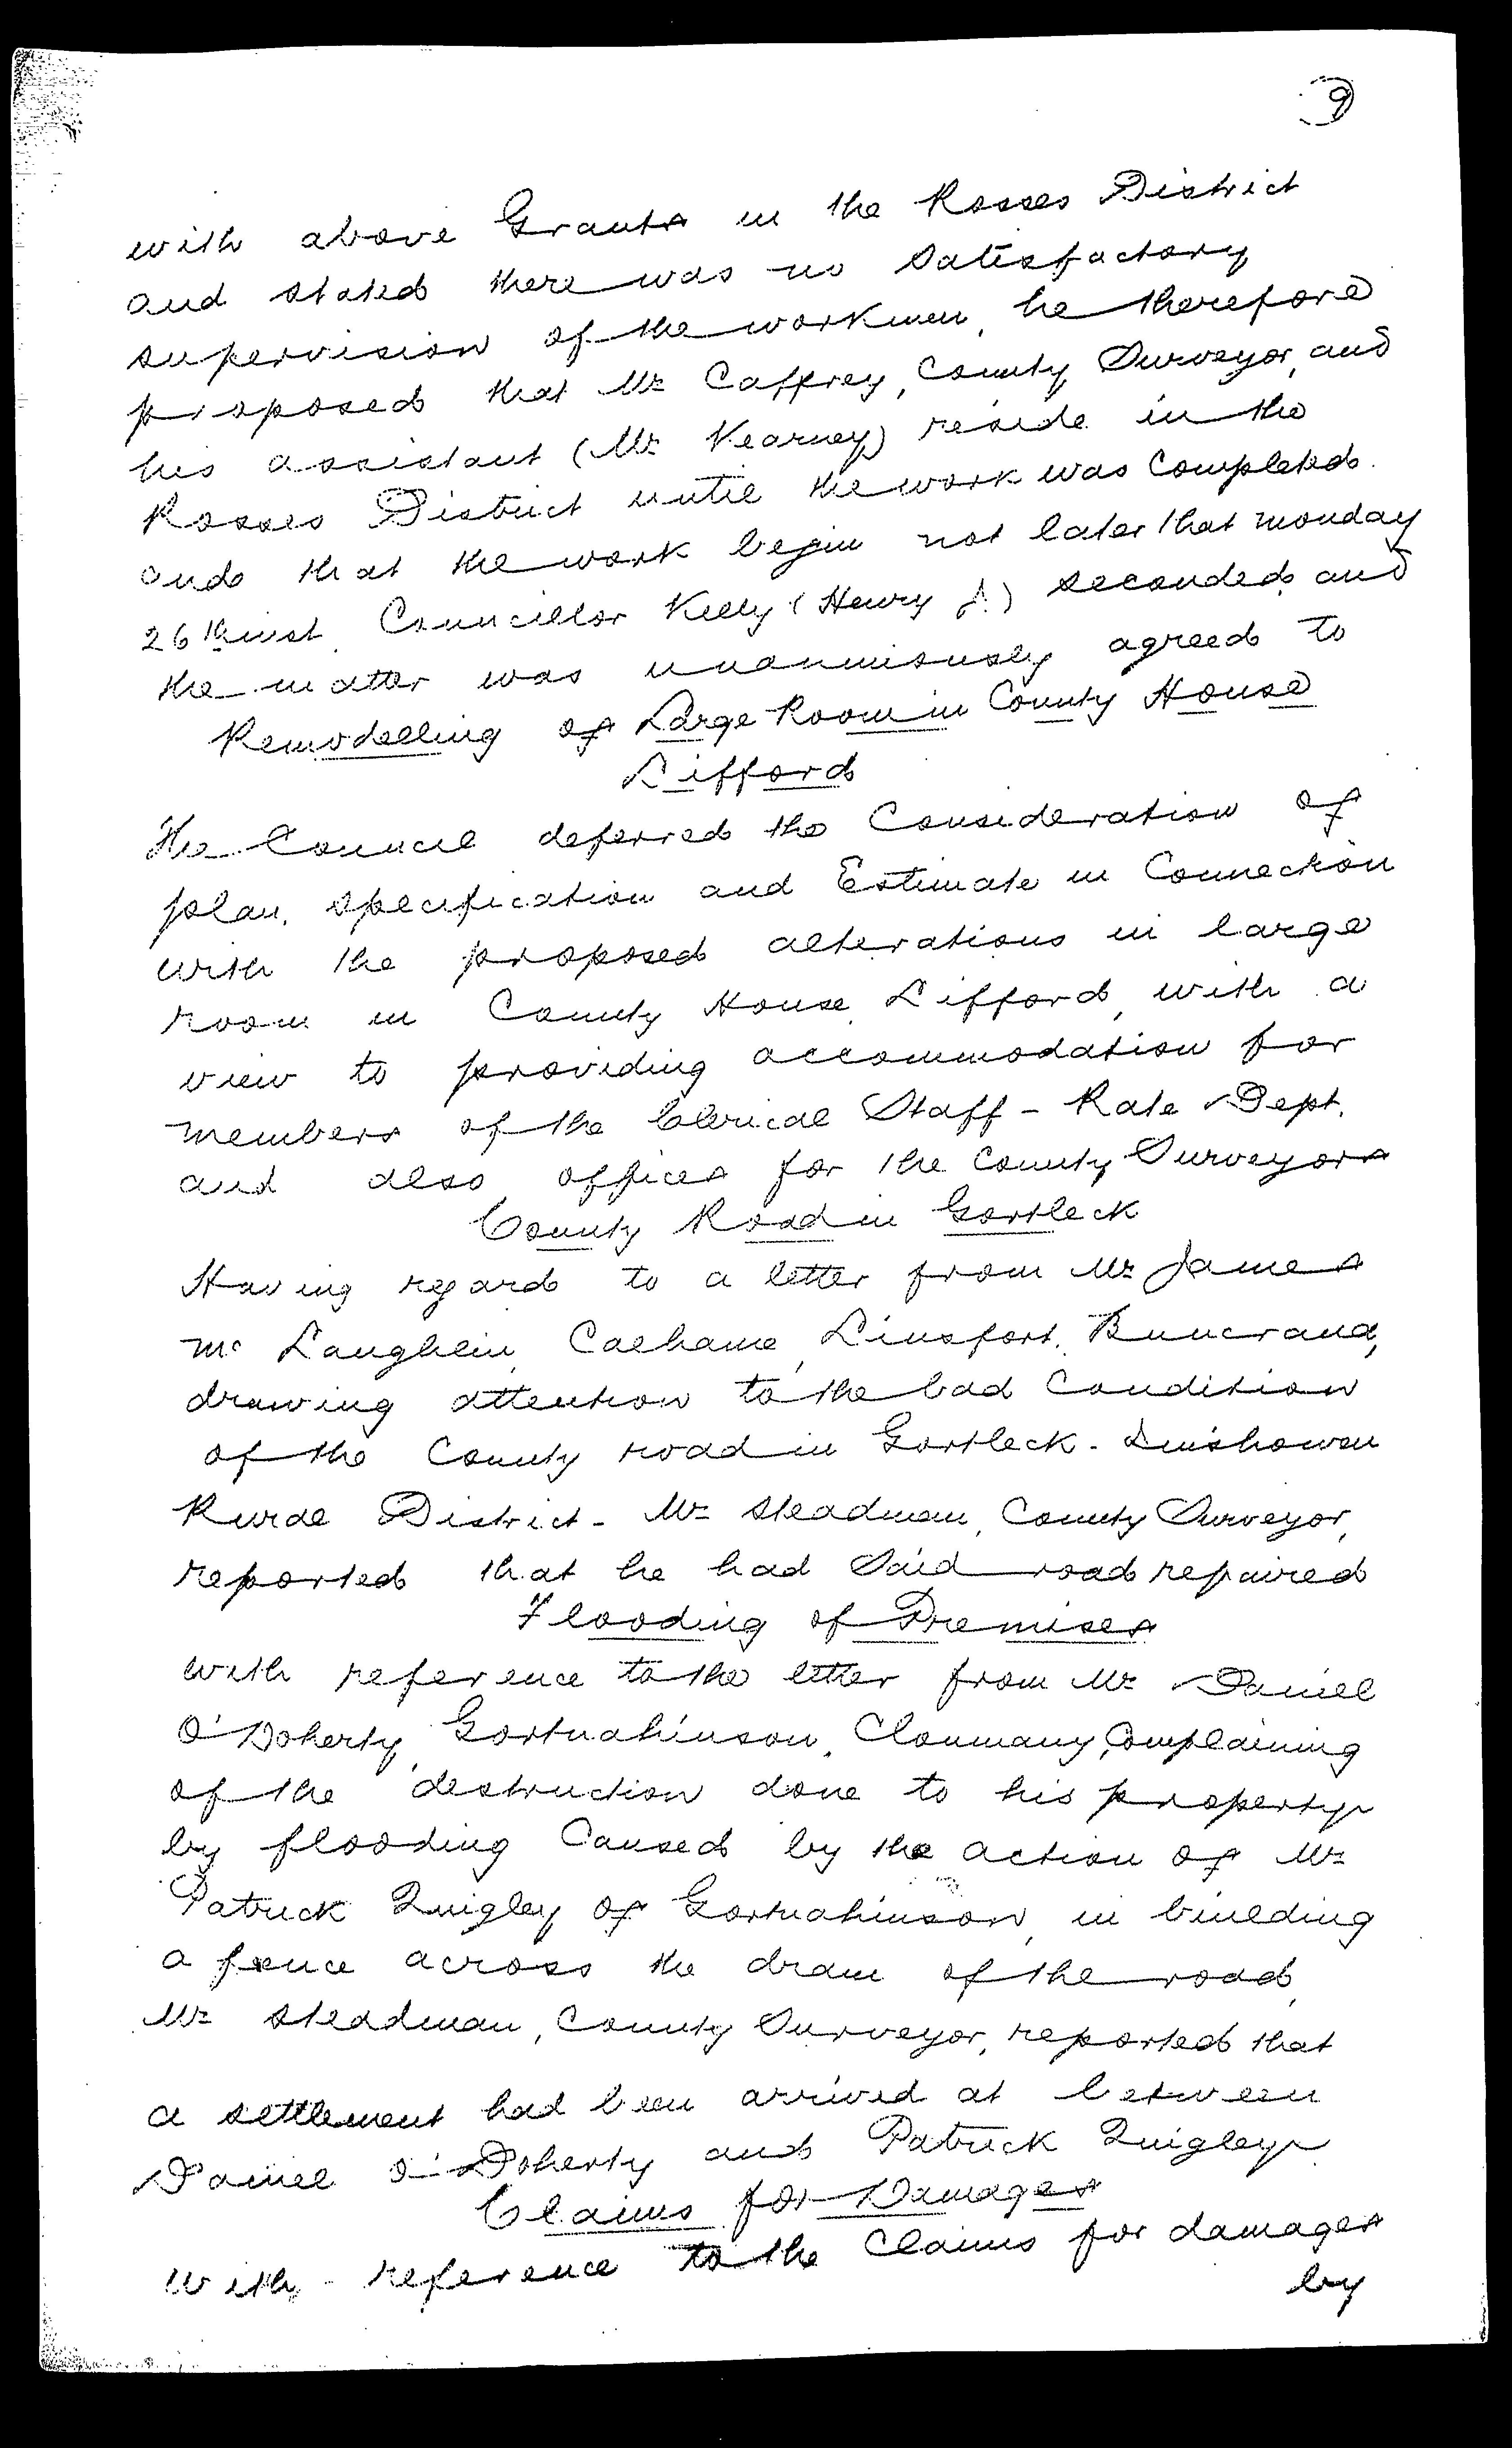 9
with above Grants in the Rosses District
and stated there was no satisfactory
supervision of the workmen, he therefore
proposed that Mr Caffrey, County Surveyor, and
his assistant (Mr Kearney) reside in the
Rosses District until the work was completed
and that the work begin not later that monday
26th inst. Councillor Kelly (Henry J.) seconded, and
the matter was unanimously agreed to
Remodelling of Large Room in County House
Lifford
The Council deferred the Consideration of
plan, specification and Estimate in Connection
with the proposed alterations in large
room in County House, Lifford, with a
view to providing accommodation for
members of the Clerical Staff - Rate Dept.
and also offices for the County Surveyors
County Road in Gortleck
Having regard to a letter from Mr James
Mc Laughlin, Calhame, Linsfort, Buncrana,
drawing attention to the bad Condition
of the County road in Gortleck - Inishowen
Rural District - Mr Steadman, County Surveyor,
reported that he had said road repaired
Flooding of Premises
With reference to the letter from Mr Daniel
O'Doherty, Gortnahinson, Clonmany, Complaining
of the destruction done to his property
by flooding Caused by the action of Mr
Patrick Quigley of Gortnahinson, in building
a fence across the drain of the road,
Mr Steadman, County Surveyor, reported that
a settlement had been arrived at between
Daniel O'Doherty and Patrick Quigley
Claims for Damages
With reference to the Claims for damages
by